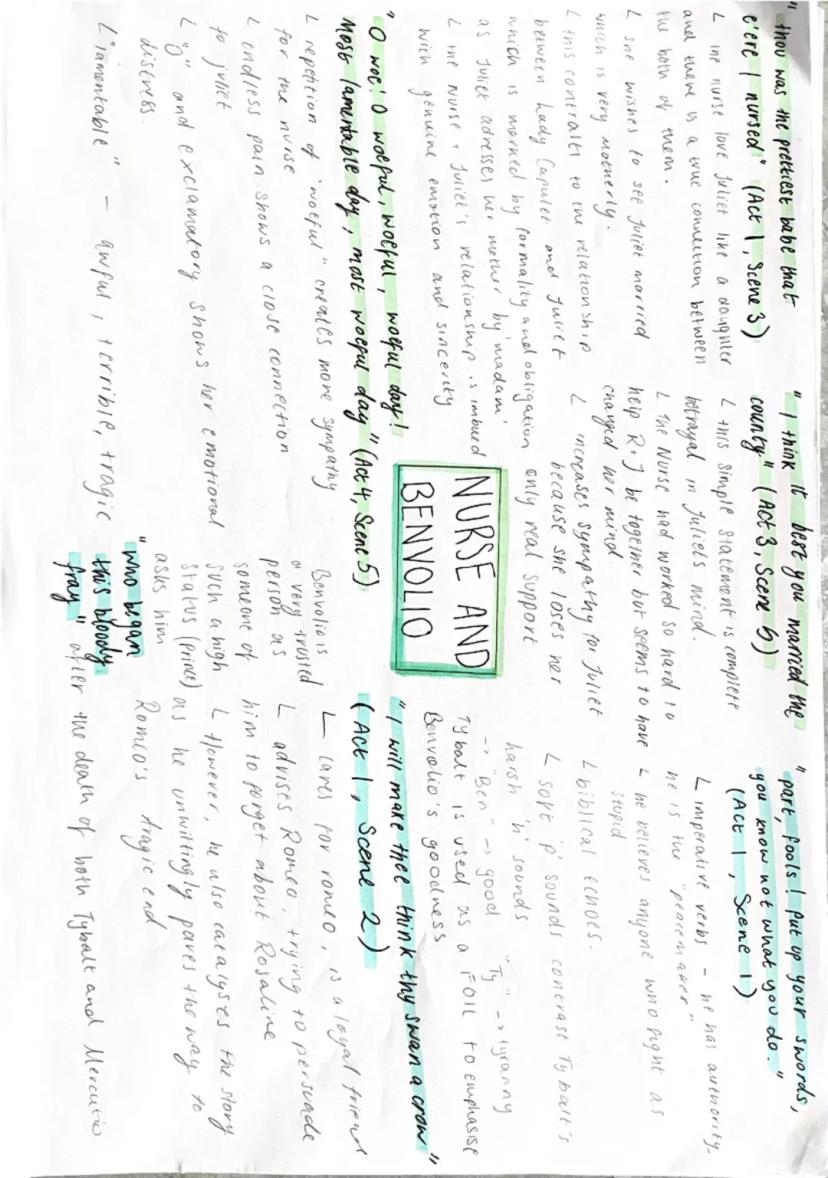 " thou was the prettiest babe that
e'ere I nursed" (Act 1, Scene 3)
L the nurse love Juliet like a daughter
and there is a true connection between
the both of them.
L she wishes to see Juliet married
which is very motherly.
L this contrasts to the relationship
between Lady Capulet and Juliet
which is morned by formality and obligation
as Juliet adresses her mother by 'madam'
L the nurse + Juliet's relationship is imbued
with genuine emotion and sincerity
" I think it best you married the
county" (Act 3, Scene 5)
L this simple statement is complete
betrayal in Juliet's mind.
L the Nurse had worked so hard to
help R+J be together but seems to have
changed her mind.
L increases sympathy for Juliet
because she loses her
only real support.
" part, fools! put up your swords,
you know not what you do."
(Act 1, Scene 1)
L imperative verbs - he has authority.
he is the "peacemaker"
L he believes anyone who fight as
stupid
L biblical echoes.
L soft 'p' sounds contrast Tybalt's
harsh 'h' sounds
→ "Ben" → good "Ty" → tyranny
Tybalt is used as a FOIL to emphasise
Benvolio's goodness
NURSE AND
BENVOLIO
" O woe! O woeful, woeful, woeful day!
Most lamentable day, most woeful day" (Act 4, Scene 5)
L repetition of 'woeful" creates more sympathy
for the nurse
L endless pain shows a close connection
to Juliet
L "O" and exclamatory shows her emotional
distress.
L "lamentable" - awful, terrible, tragic
Benvolio is
a very trusted
person as
someone of
such a high
status (prince)
asks him
"who began
this bloody
fray" after the death of both Tybalt and Mercutio
"I will make thee think thy swan a crow"
(Act 1, Scene 2)
L cares for romeo, is a loyal friend
L advises Romeo, trying to persuade
him to forget about Rosaline
L However, he also catalyses the story
as he unwittingly paves the way to
Romeo's tragic end.